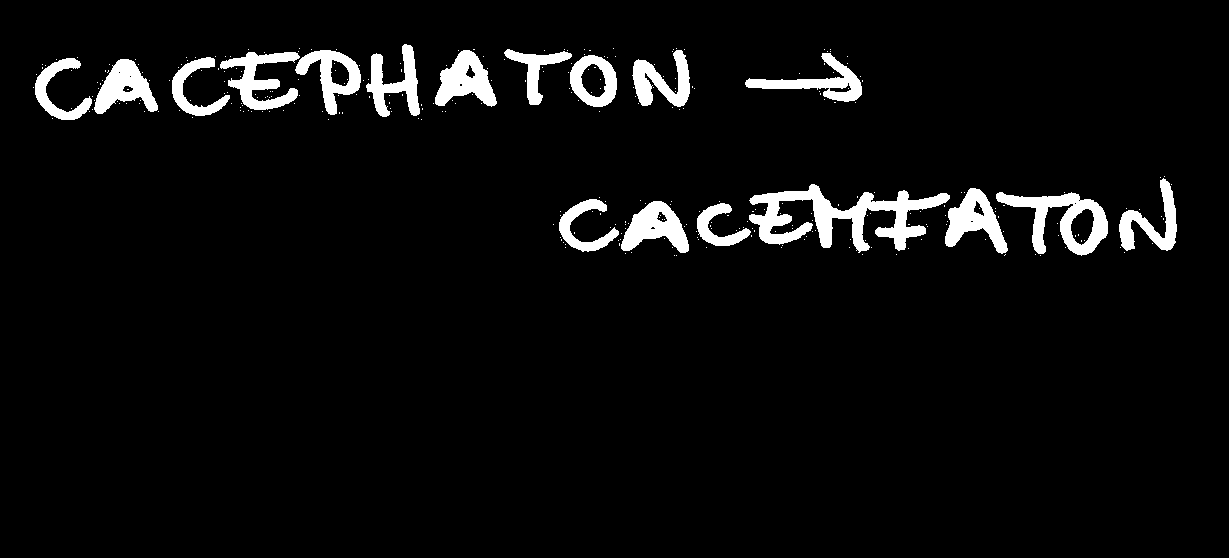 CACEPHATON →
CACEMFATON